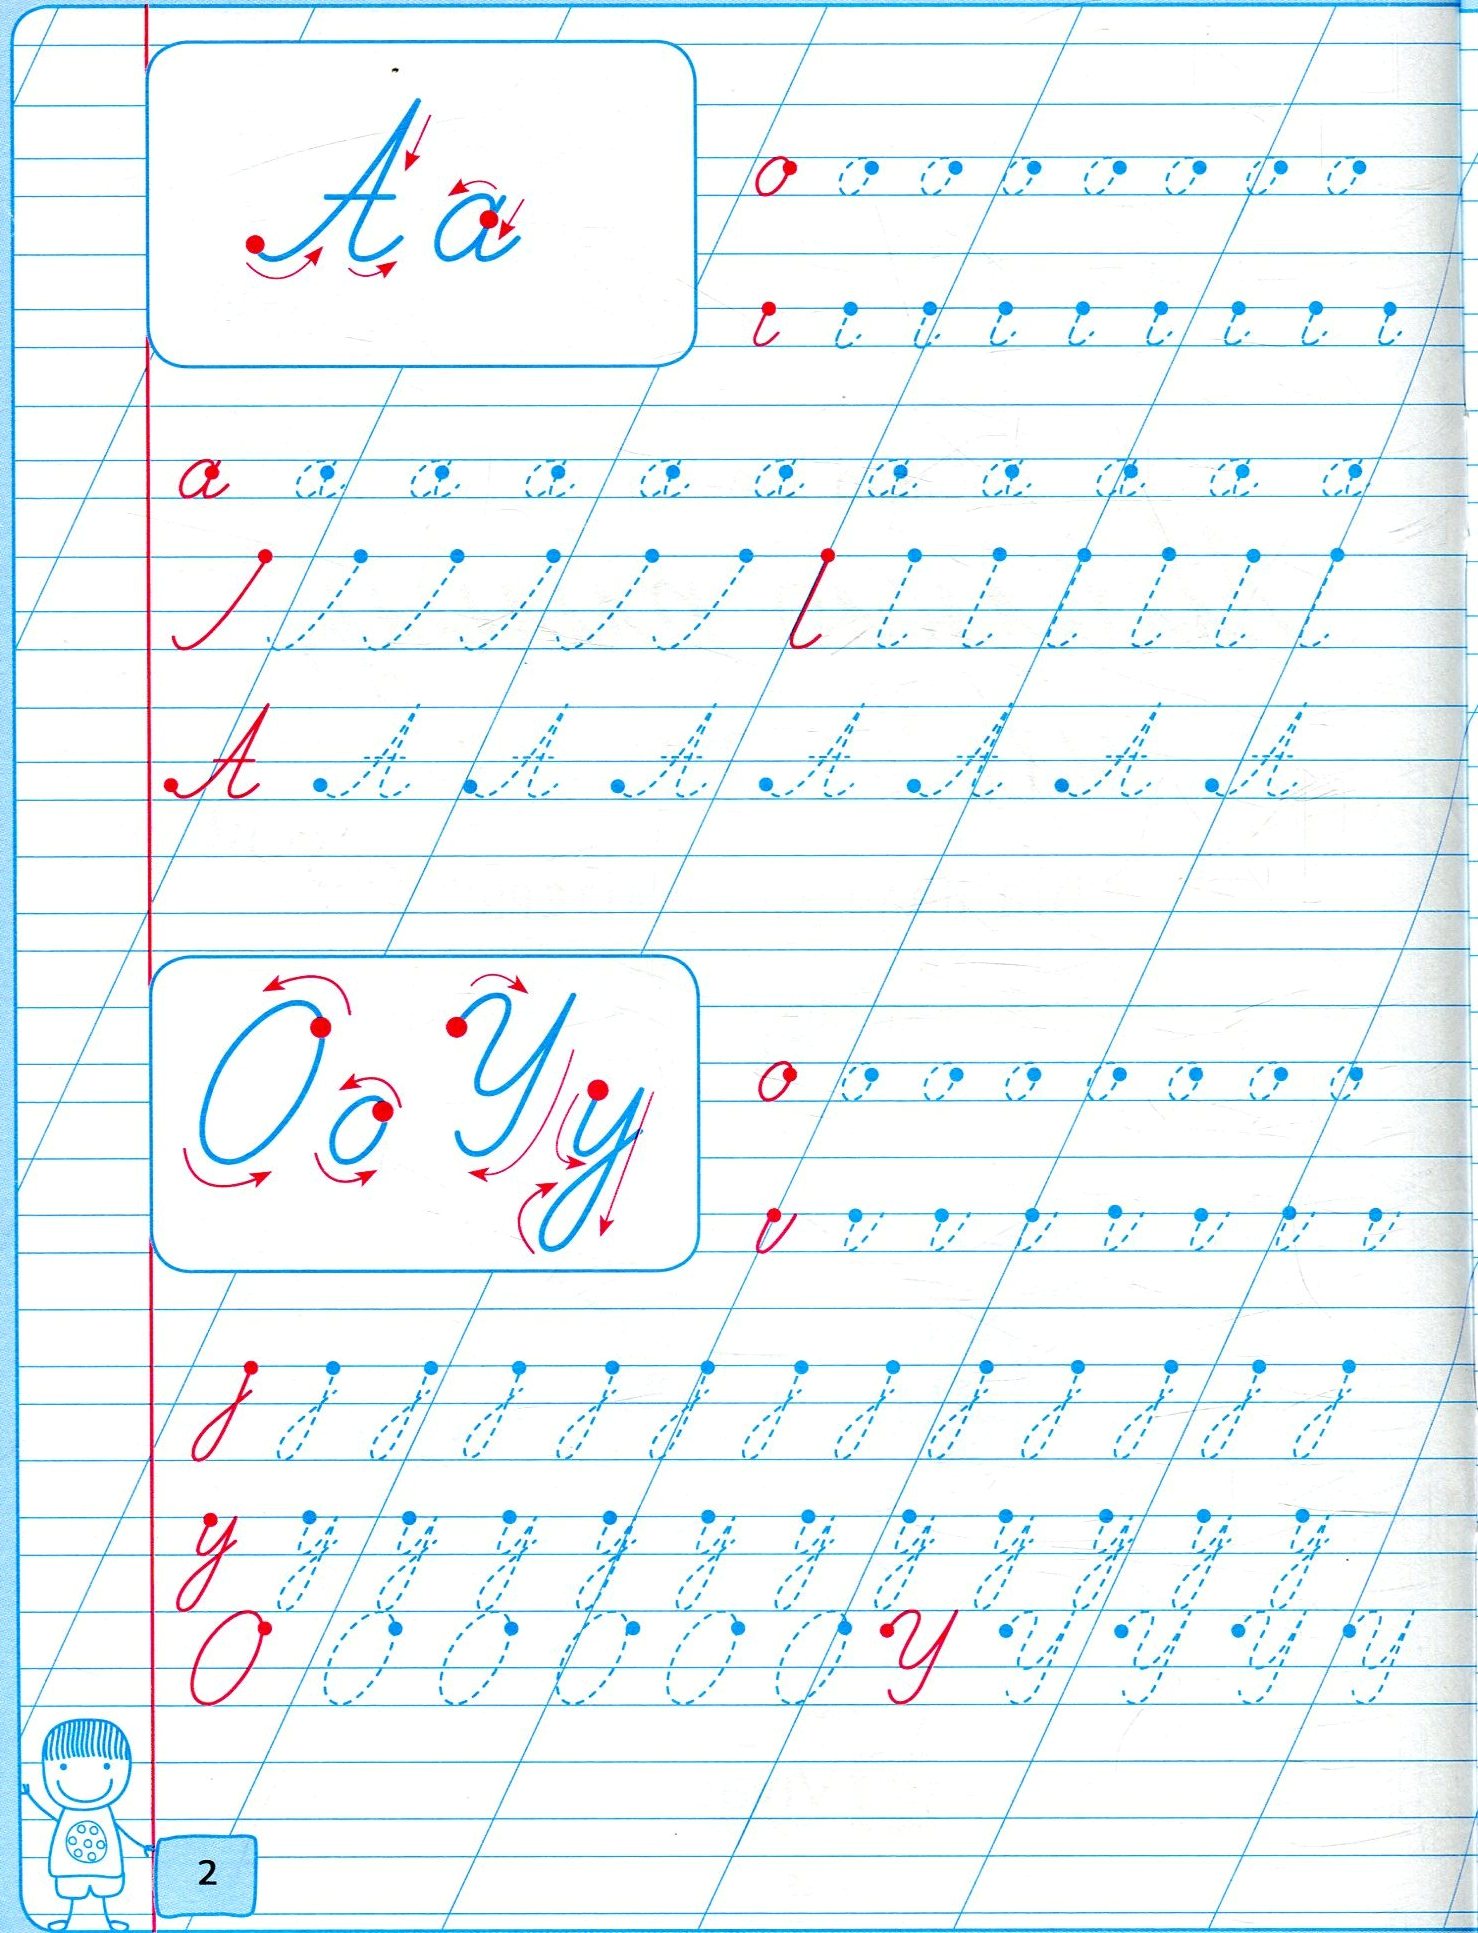 А а
о о о о о о о о
а а а а а а а а а а а
А А А А А А А А
О о У у
о о о о о о о о
у у у у у у у у у у у у
О О О О О О У У У У У
2